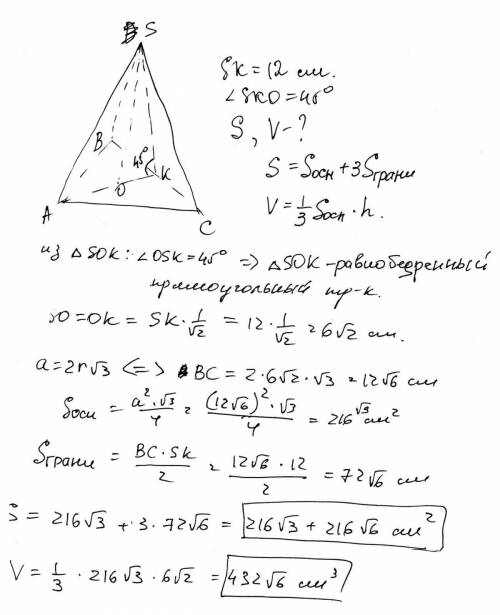 S
SK = 12 см.
∠SKO = 45°
S, V - ?
S = Sосн + 3Sграни
V = 1/3 Sосн · h.
B
45°
K
O
A
C
из △SOK: ∠OSK = 45° => △SOK - равнобедренный
прямоугольный тр-к.
SO = OK = SK · 1/√2 = 12 · 1/√2 = 6√2 см.
a = 2r√3 <=> BC = 2 · 6√2 · √3 = 12√6 см
Sосн = a²·√3/4 = (12√6)²·√3/4 = 216√3 см²
Sграни = BC·SK/2 = 12√6 · 12/2 = 72√6 см
S = 216√3 + 3 · 72√6 = 216√3 + 216√6 см²
V = 1/3 · 216√3 · 6√2 = 432√6 см³